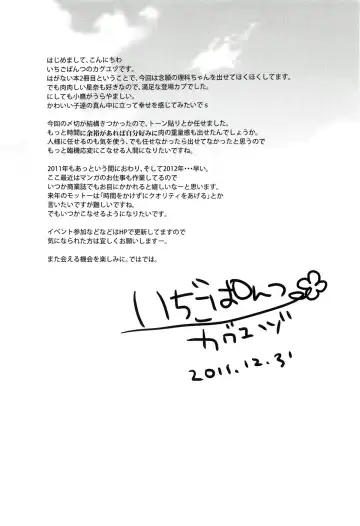 はじめまして、こんにちわ
いちごぱんつのカグユヅです。
はがない本2冊目ということで、今回は念願の理科ちゃんを出せてほくほくしてます。
でも肉肉しい星奈も好きなので、満足な登場カプでした。
にしても小鷹がうらやましい。
かわいい子達の真ん中に立って幸せを感じてみたいでs
今回の〆切が結構きつかったので、トーン貼りとか任せました。
もっと時間に余裕があれば自分好みに肉の重量感も出せたんでしょうか。
人様に任せるのも気を使う、でも任せなかったら出せてなかったと思うので
もっと臨機応変にこなせる人間になりたいですね。
2011年もあっという間におわり、そして2012年・・・早い。
ここ最近はマンガのお仕事も作業してるので
いつか商業誌でもお目にかかれると嬉しいなーと思います。
来年のモットーは「時間をかけずにクオリティをあげる」とか
言いたいですが難しいですね。
でもいつかこなせるようになりたいです。
イベント参加などなどはHPで更新してますので
気になられた方は宜しくお願いしますー。
また会える機会を楽しみに。ではでは。
いちごぱんつ
カグユヅ
2011.12.31